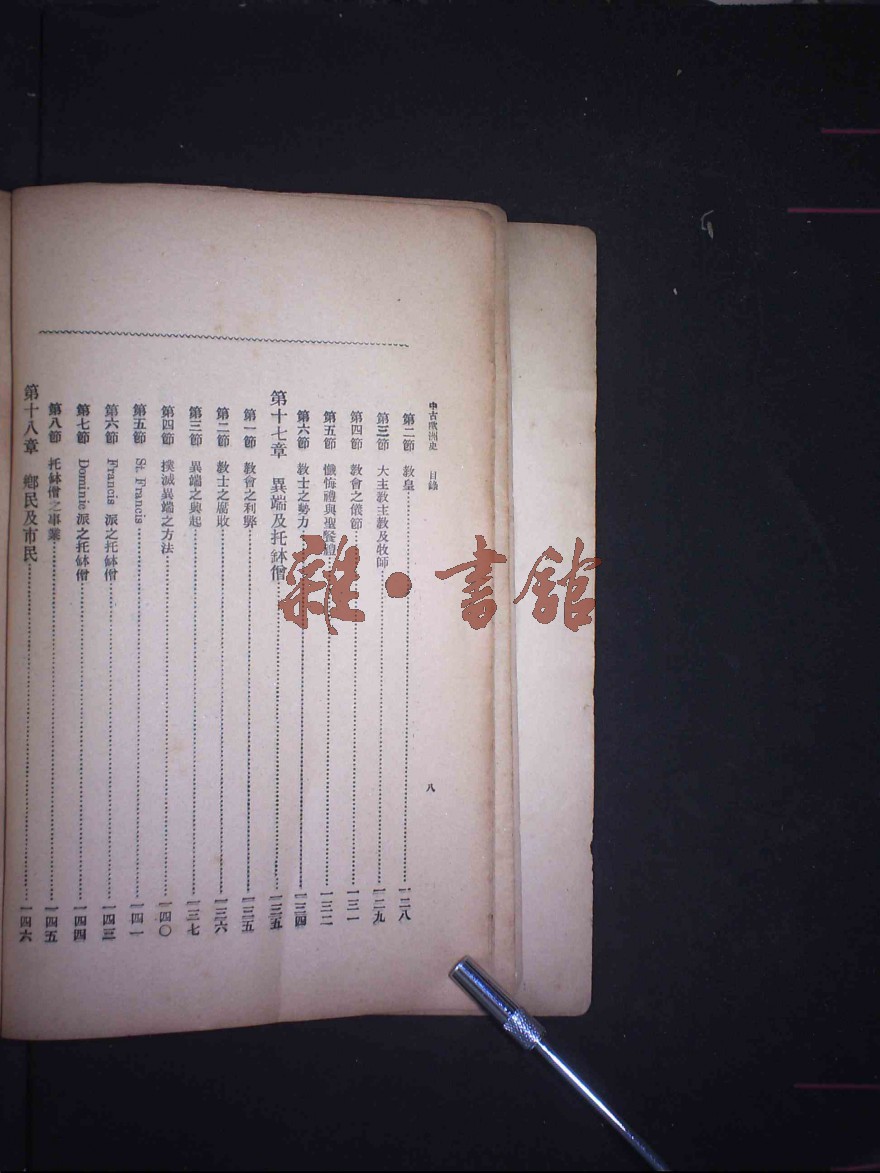 中古歐洲史 目錄
八
第二節 教皇 一二八
第三節 大主教主教及牧師 一二九
第四節 教會之儀節 一三一
第五節 懺悔禮與聖餐禮 一三二
第六節 教士之勢力 一三四
第十七章 異端及托鉢僧 一三五
第一節 教會之利弊 一三五
第二節 教士之腐敗 一三六
第三節 異端之興起 一三七
第四節 撲滅異端之方法 一四〇
第五節 St. Francis 一四一
第六節 Francis 派之托鉢僧 一四三
第七節 Dominic 派之托鉢僧 一四四
第八節 托鉢僧之事業 一四五
第十八章 鄉民及市民 一四六
雜·書館